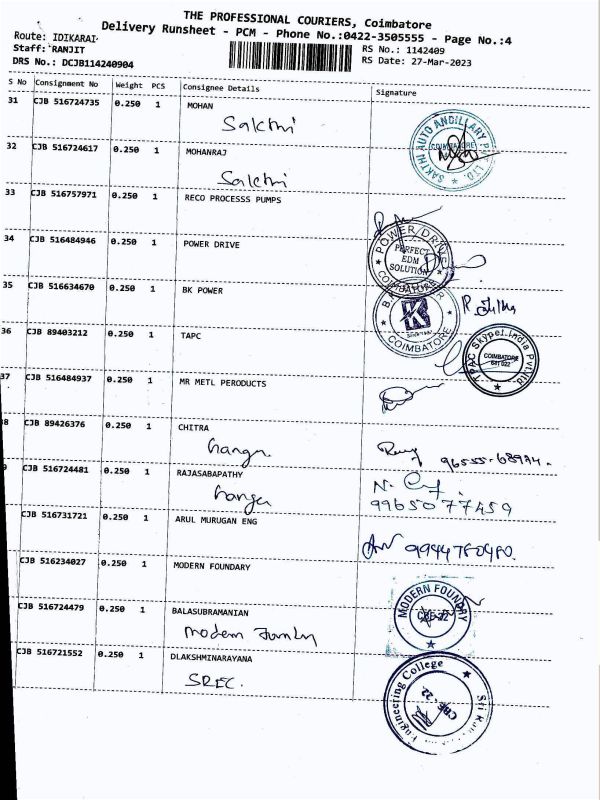 THE PROFESSIONAL COURIERS, Coimbatore
Delivery Runsheet - PCM - Phone No.:0422-3505555 - Page No.:4
Route: IDIKARAI
RS No.: 1142409
Staff: RANJIT
RS Date: 27-Mar-2023
DRS No.: DCJB114240904
S No Consignment No Weight PCS Consignee Details Signature
31 CJB 516724735 0.250 1 MOHAN
Sakthi
SAKTHI AUTO ANCILLARY PVT. LTD.
COIMBATORE
32 CJB 516724617 0.250 1 MOHANRAJ
Sakthi
33 CJB 516757971 0.250 1 RECO PROCESSS PUMPS
34 CJB 516484946 0.250 1 POWER DRIVE
POWER DRIVE
PERFECT
EDM
SOLUTION
COIMBATORE
35 CJB 516634670 0.250 1 BK POWER
BK
COIMBATORE
36 CJB 89403212 0.250 1 TAPC
TPAC Skypet India Pvt Ltd
COIMBATORE
641 022
37 CJB 516484937 0.250 1 MR METL PERODUCTS
8 CJB 89426376 0.250 1 CHITRA
Ganga
96555-68974.
9 CJB 516724481 0.250 1 RAJASABAPATHY
Ganga
9965077459
CJB 516731721 0.250 1 ARUL MURUGAN ENG
9944780480.
CJB 516234027 0.250 1 MODERN FOUNDARY
MODERN FOUNDRY
CBE-22
CJB 516724479 0.250 1 BALASUBRAMANIAN
Modern Foundry
CJB 516721552 0.250 1 DLAKSHMINARAYANA
SREC.
Engineering College
CBE-22.